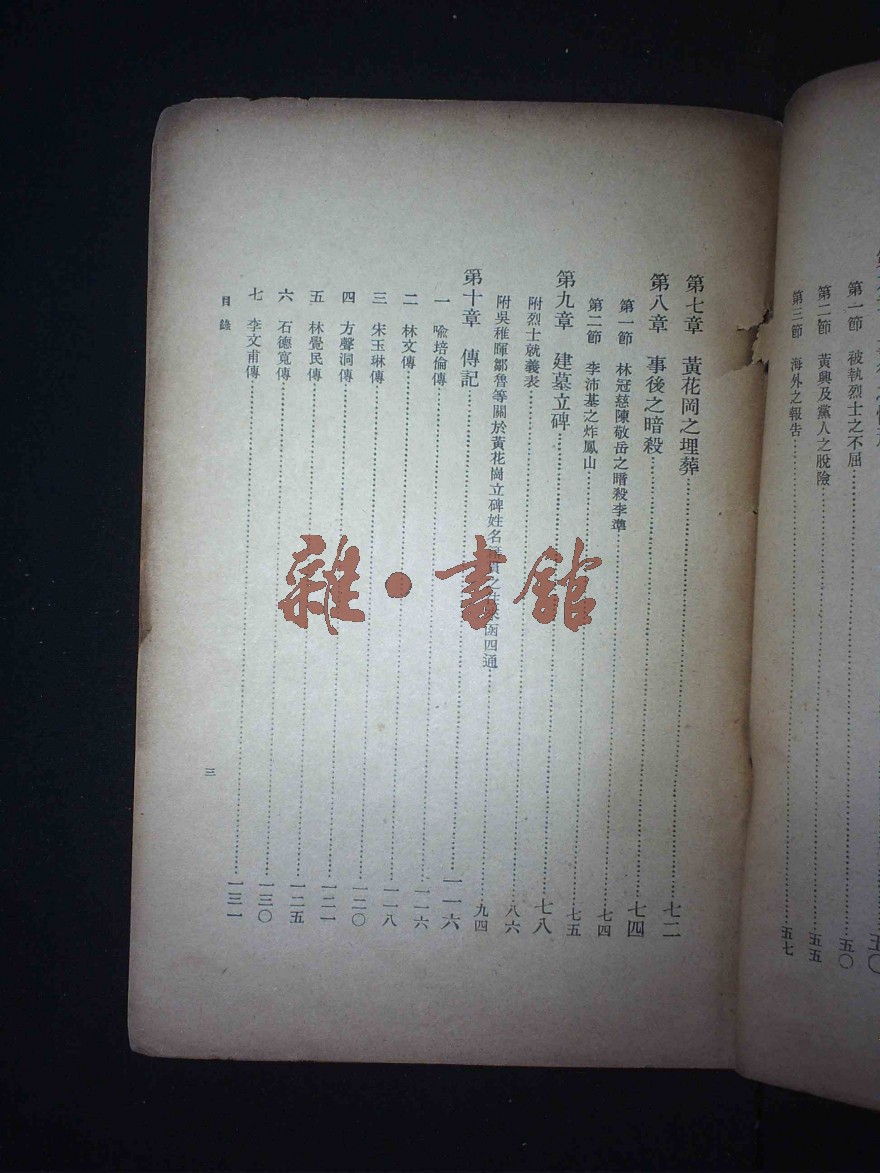 第一節　被執烈士之不屈……五〇
第二節　黃興及黨人之脫險……五五
第三節　海外之報告……五七
第七章　黃花岡之埋葬……七二
第八章　事後之暗殺……七四
第一節　林冠慈陳敬岳之暗殺李準……七四
第二節　李沛基之炸鳳山……七五
第九章　建墓立碑……七八
附烈士就義表……八六
附吳稚暉鄒魯等關於黃花崗立碑姓名　之　函四通……九四
第十章　傳記……一一六
一　喩培倫傳……一一六
二　林文傳……一一八
三　宋玉琳傳……一二〇
四　方聲洞傳……一二一
五　林覺民傳……一二五
六　石德寬傳……一三〇
七　李文甫傳……一三一
目錄
三
雜·書館